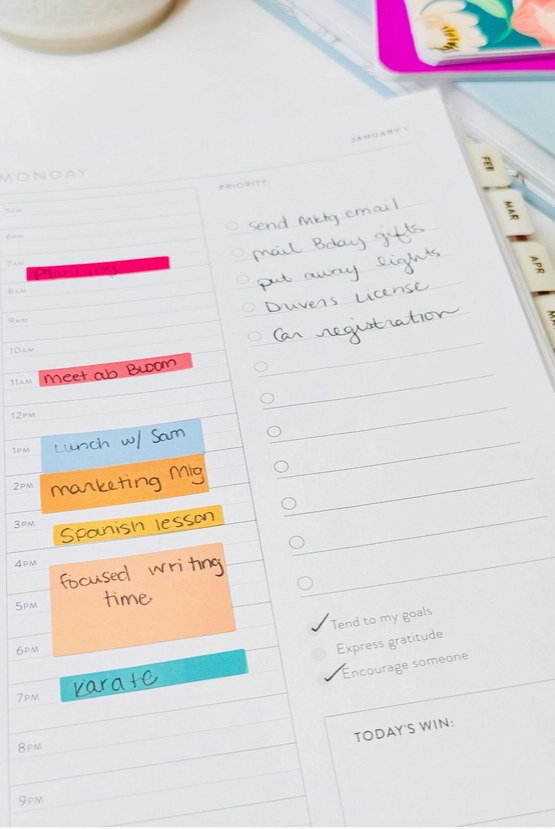 JANUARY 1
MONDAY
PRIORITY:
5AM
6AM
7AM
Planning
8AM
9AM
10AM
meet ab Bloom
11AM
12PM
Lunch w/ Sam
1PM
marketing Mtg
2PM
Spanish lesson
3PM
4PM
focused writing
time
5PM
6PM
karate
7PM
8PM
9PM
send Mktg email
mail Bday gifts
put away lights
Drivers License
Car registration
Tend to my goals
Express gratitude
Encourage someone
TODAY'S WIN:
FEB
MAR
APR